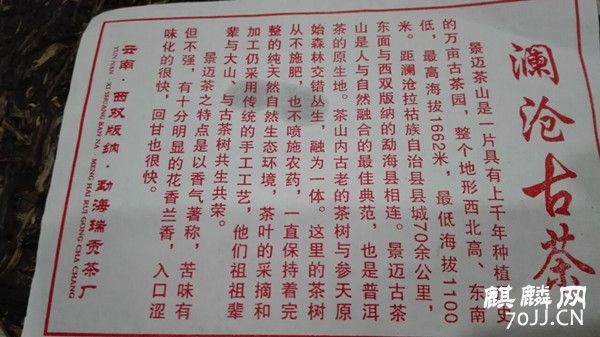 澜沧古茶
景迈茶山是一片具有上千年种植历史
的万亩古茶园，整个地形西北高、东南
低，最高海拔1662米，最低海拔1100
米。距澜沧拉祜族自治县县城70余公里，
东面与西双版纳的勐海县相连。景迈古茶
山是人与自然融合的最佳典范，也是普洱
茶的原生地。茶山内古老的茶树与参天原
始森林交错丛生，融为一体。这里的茶树
从不施肥，也不喷施农药，一直保持着完
整的纯天然自然生态环境，茶叶的采摘和
加工仍采用传统的手工工艺，他们祖祖辈
辈与大山、与古茶树共生共荣。
景迈茶之特点是以香气著称，苦味有
但不强，有十分明显的花香兰香，入口涩
味化的很快，回甘也很快。
云南·西双版纳·勐海瑞贡茶厂
YUN NAN XI SHUANG BAN NA MENG HAI RUI GONG CHA CHANG
麒麟网
70JJ.CN